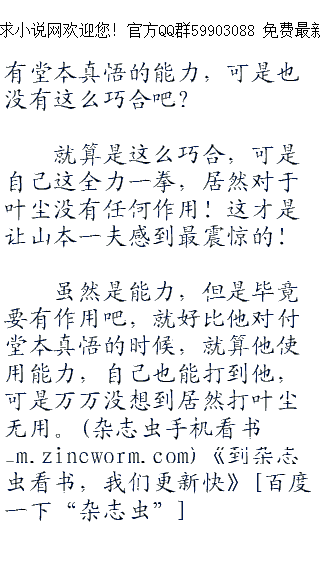 求小说网欢迎您! 官方QQ群59903088 免费最新
有堂本真悟的能力，可是也
没有这么巧合吧？
就算是这么巧合，可是
自己这全力一拳，居然对于
叶尘没有任何作用！这才是
让山本一夫感到最震惊的！
虽然是能力，但是毕竟
要有作用吧，就好比他对付
堂本真悟的时候，就算他使
用能力，自己也能打到他，
可是万万没想到居然打叶尘
无用。(杂志虫手机看书
_m.zincworm.com)《到杂志
虫看书，我们更新快》[百度
一下“杂志虫”]